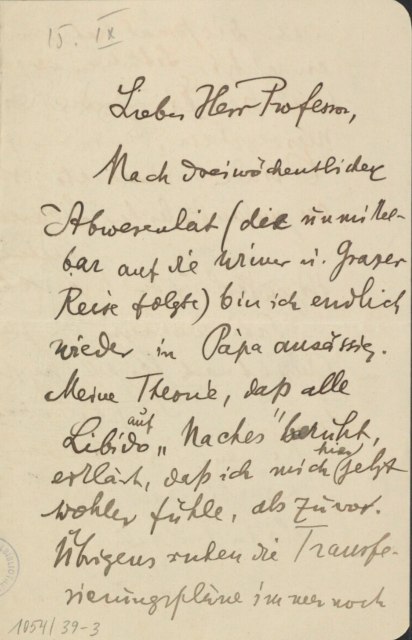 15. IX
Lieber Herr Professor,
Nach dreiwöchentlicher
Abwesenheit (die unmittel-
bar auf die Wiener u. Grazer
Reise folgte) bin ich endlich
wieder in Pápa ansässig.
Meine Theorie, daß alle
Libido auf „Naches“ beruht,
erklärt, daß ich mich hier jetzt
wohler fühle, als zuvor.
Übrigens ruhen die Transfe-
rierungspläne immer noch
1054/39-3